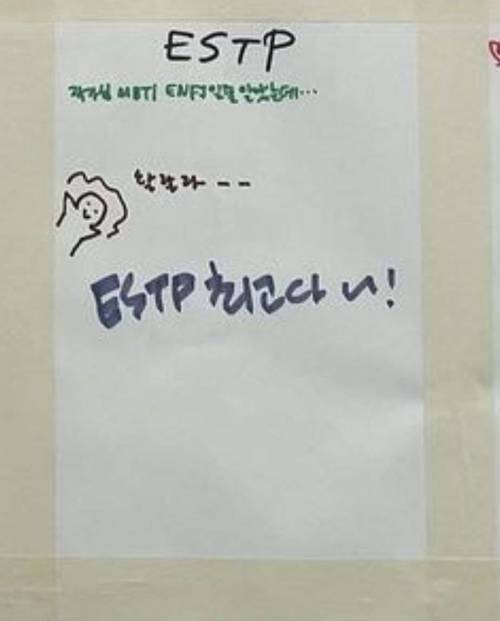 ESTP
작가님 MBTI ENFJ인줄 알았는데...
ESTP 최고다